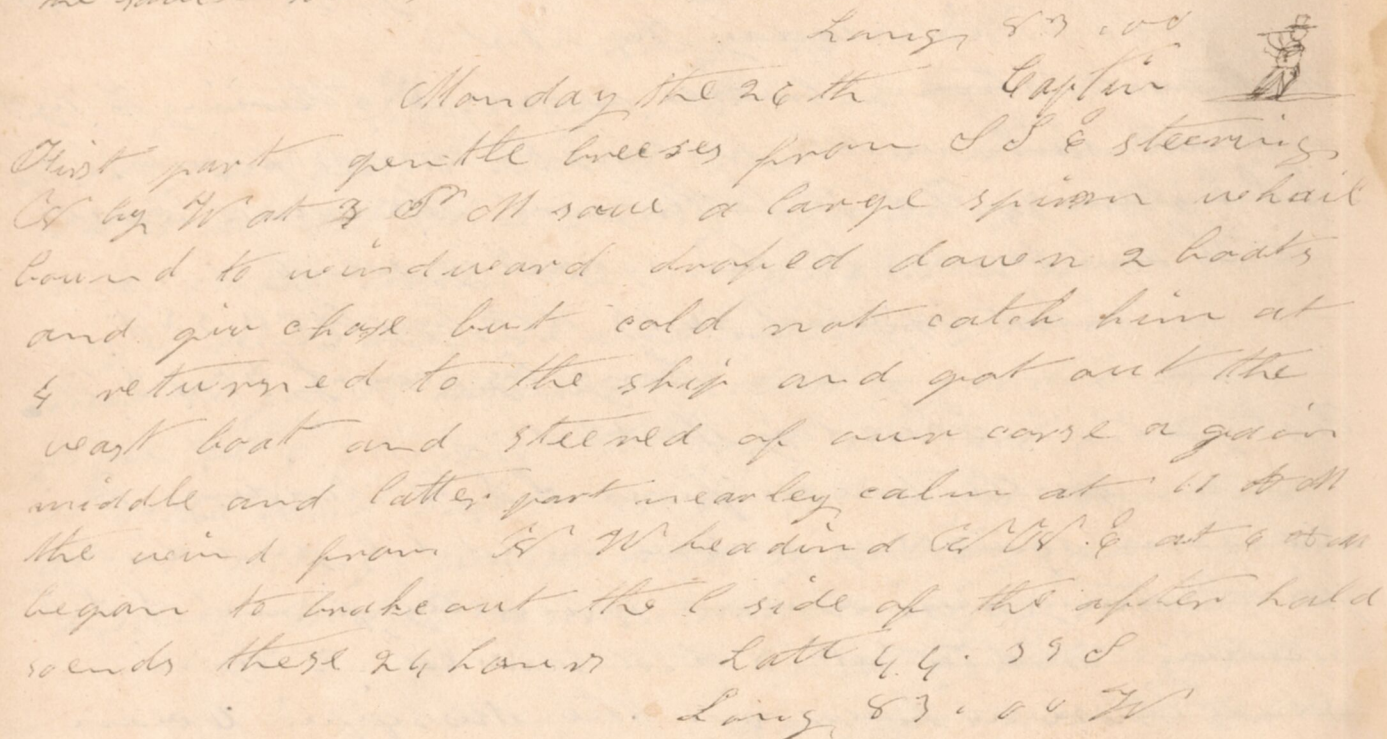 Long 83.00
Monday the 26 th Captin
First part gentle breezes from S S E steering
N by W at 3 P M saw a large spirm whail
bound to windward droped down 2 boats
and giv chase but cold not catch him at
4 returned to the ship and got out the
boat and steered of our corse a gain
middle and latter part nearley calm at 11 A M
the wind from N W headind N N E at 6 A M
began to brakeout the l side of the after hold
soends these 24 hours Latt 44.39 S
Long 83.00 W